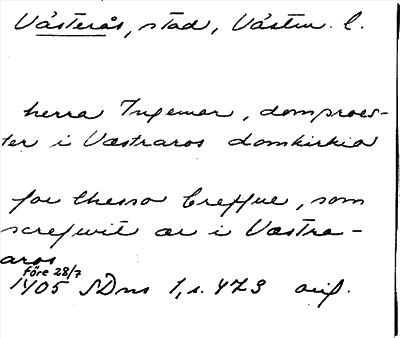 Västerås, stad, Västm. l.
herra Ingemar, domproes-
ter i Væstraros domkirkio
for thesso breffue, som
screfwit ær i Væstra-
aros
före 28/7
1405 SDns 1, s. 473 avif.